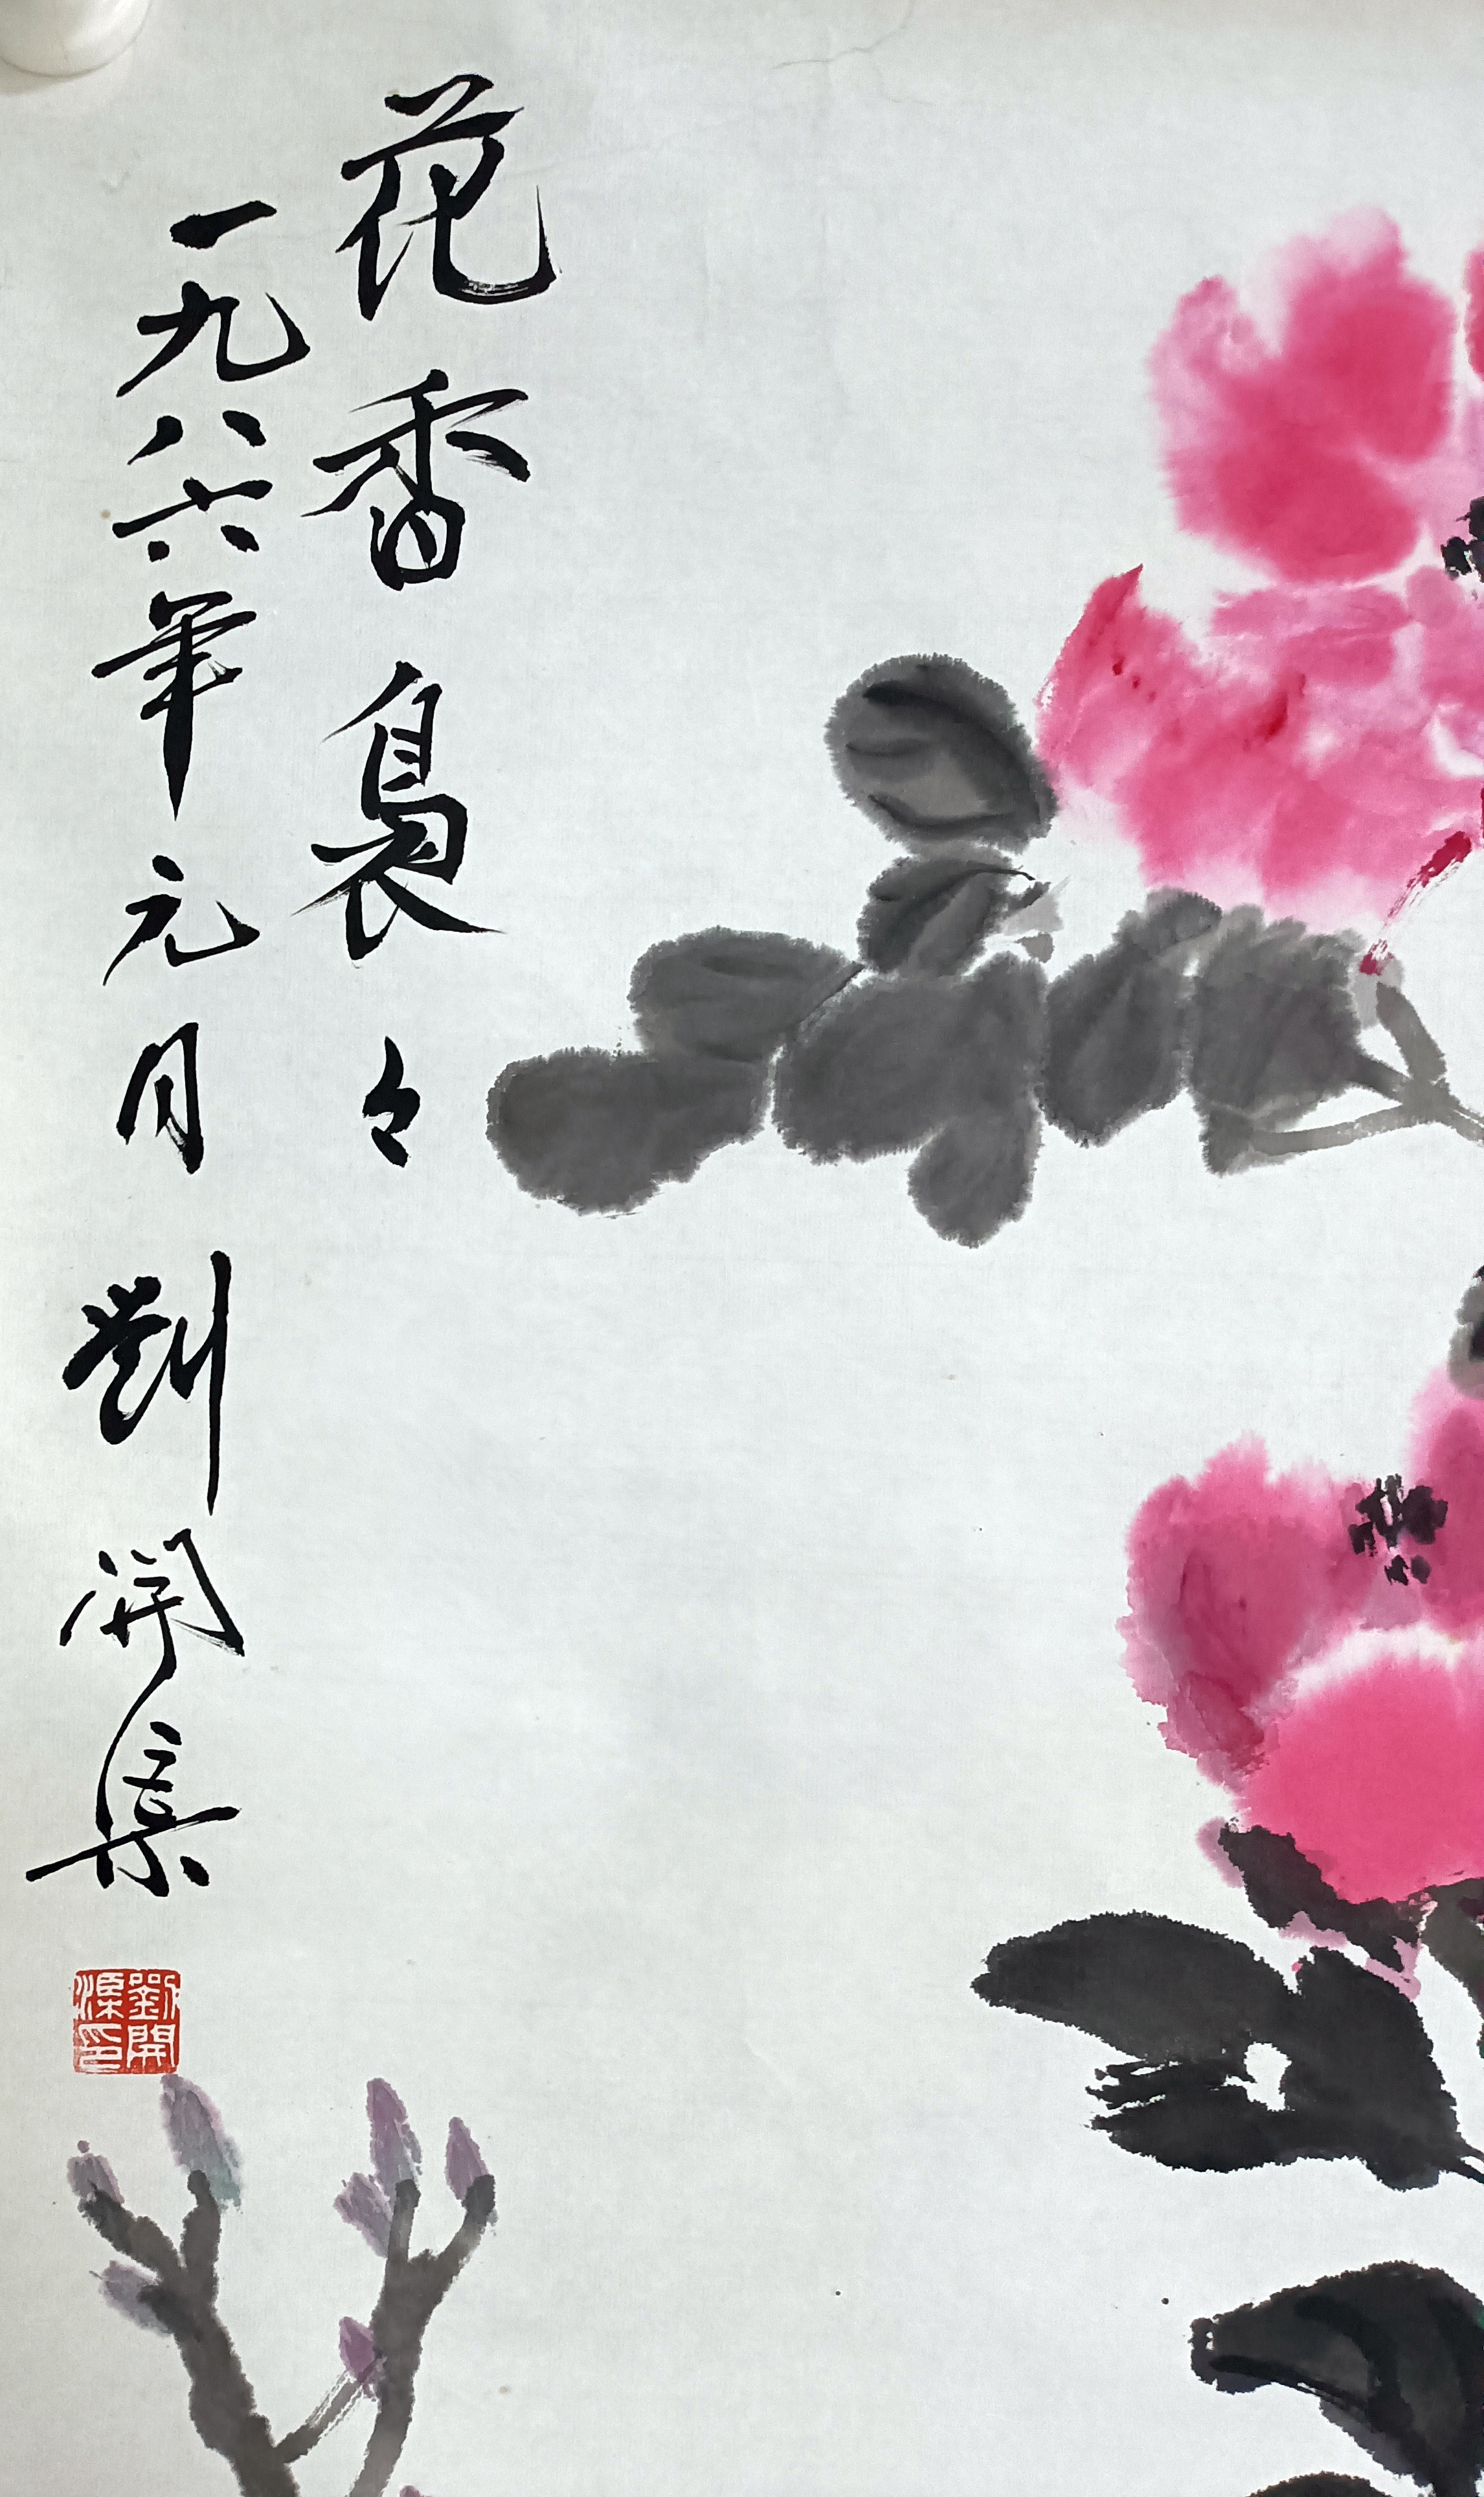 花香裊々
一九八六年元月 劉開渠
劉開渠印